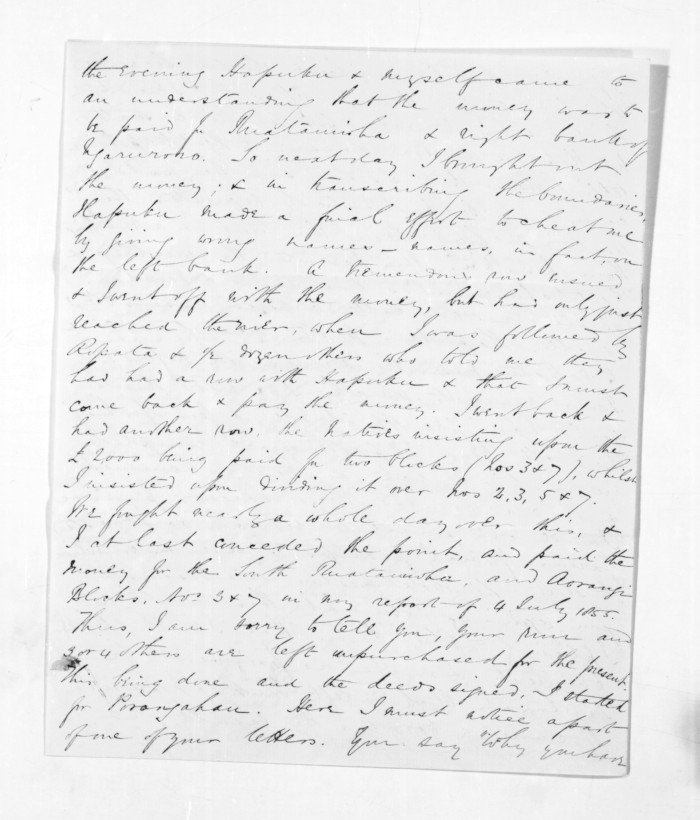 the evening Hapuku & myself came to
an understanding that the money was to
be paid for Ruataniwha & right bank of
Ngaruroro. So next day I brought out
the money; & in transcribing the boundaries,
Hapuku made a final effort to cheat me
by giving wrong names - names, in fact, on
the left bank. A tremendous row ensued
& I went off with the money, but had only just
reached the river, when I was followed by
Ropata & ½ dozen others who told me they
had had a row with Hapuku & that I must
come back & pay the money. I went back &
had another row, the Natives insisting upon the
£2000 being paid for two blocks (Nos 3 & 7), whilst
I insisted upon dividing it over Nos 2, 3, 5 & 7.
We fought nearly a whole day over this, &
I at last conceded the point, and paid the
money for the South Ruataniwha, and Aorangi
Blocks, Nos 3 & 7 in my report of 4 July 1855.
Thus, I am sorry to tell you, your run and
3 or 4 others are left unpurchased for the present.
This being done and the deeds signed, I started
for Porangahau. Here I must notice a part
of one of your letters. You say "Why you have